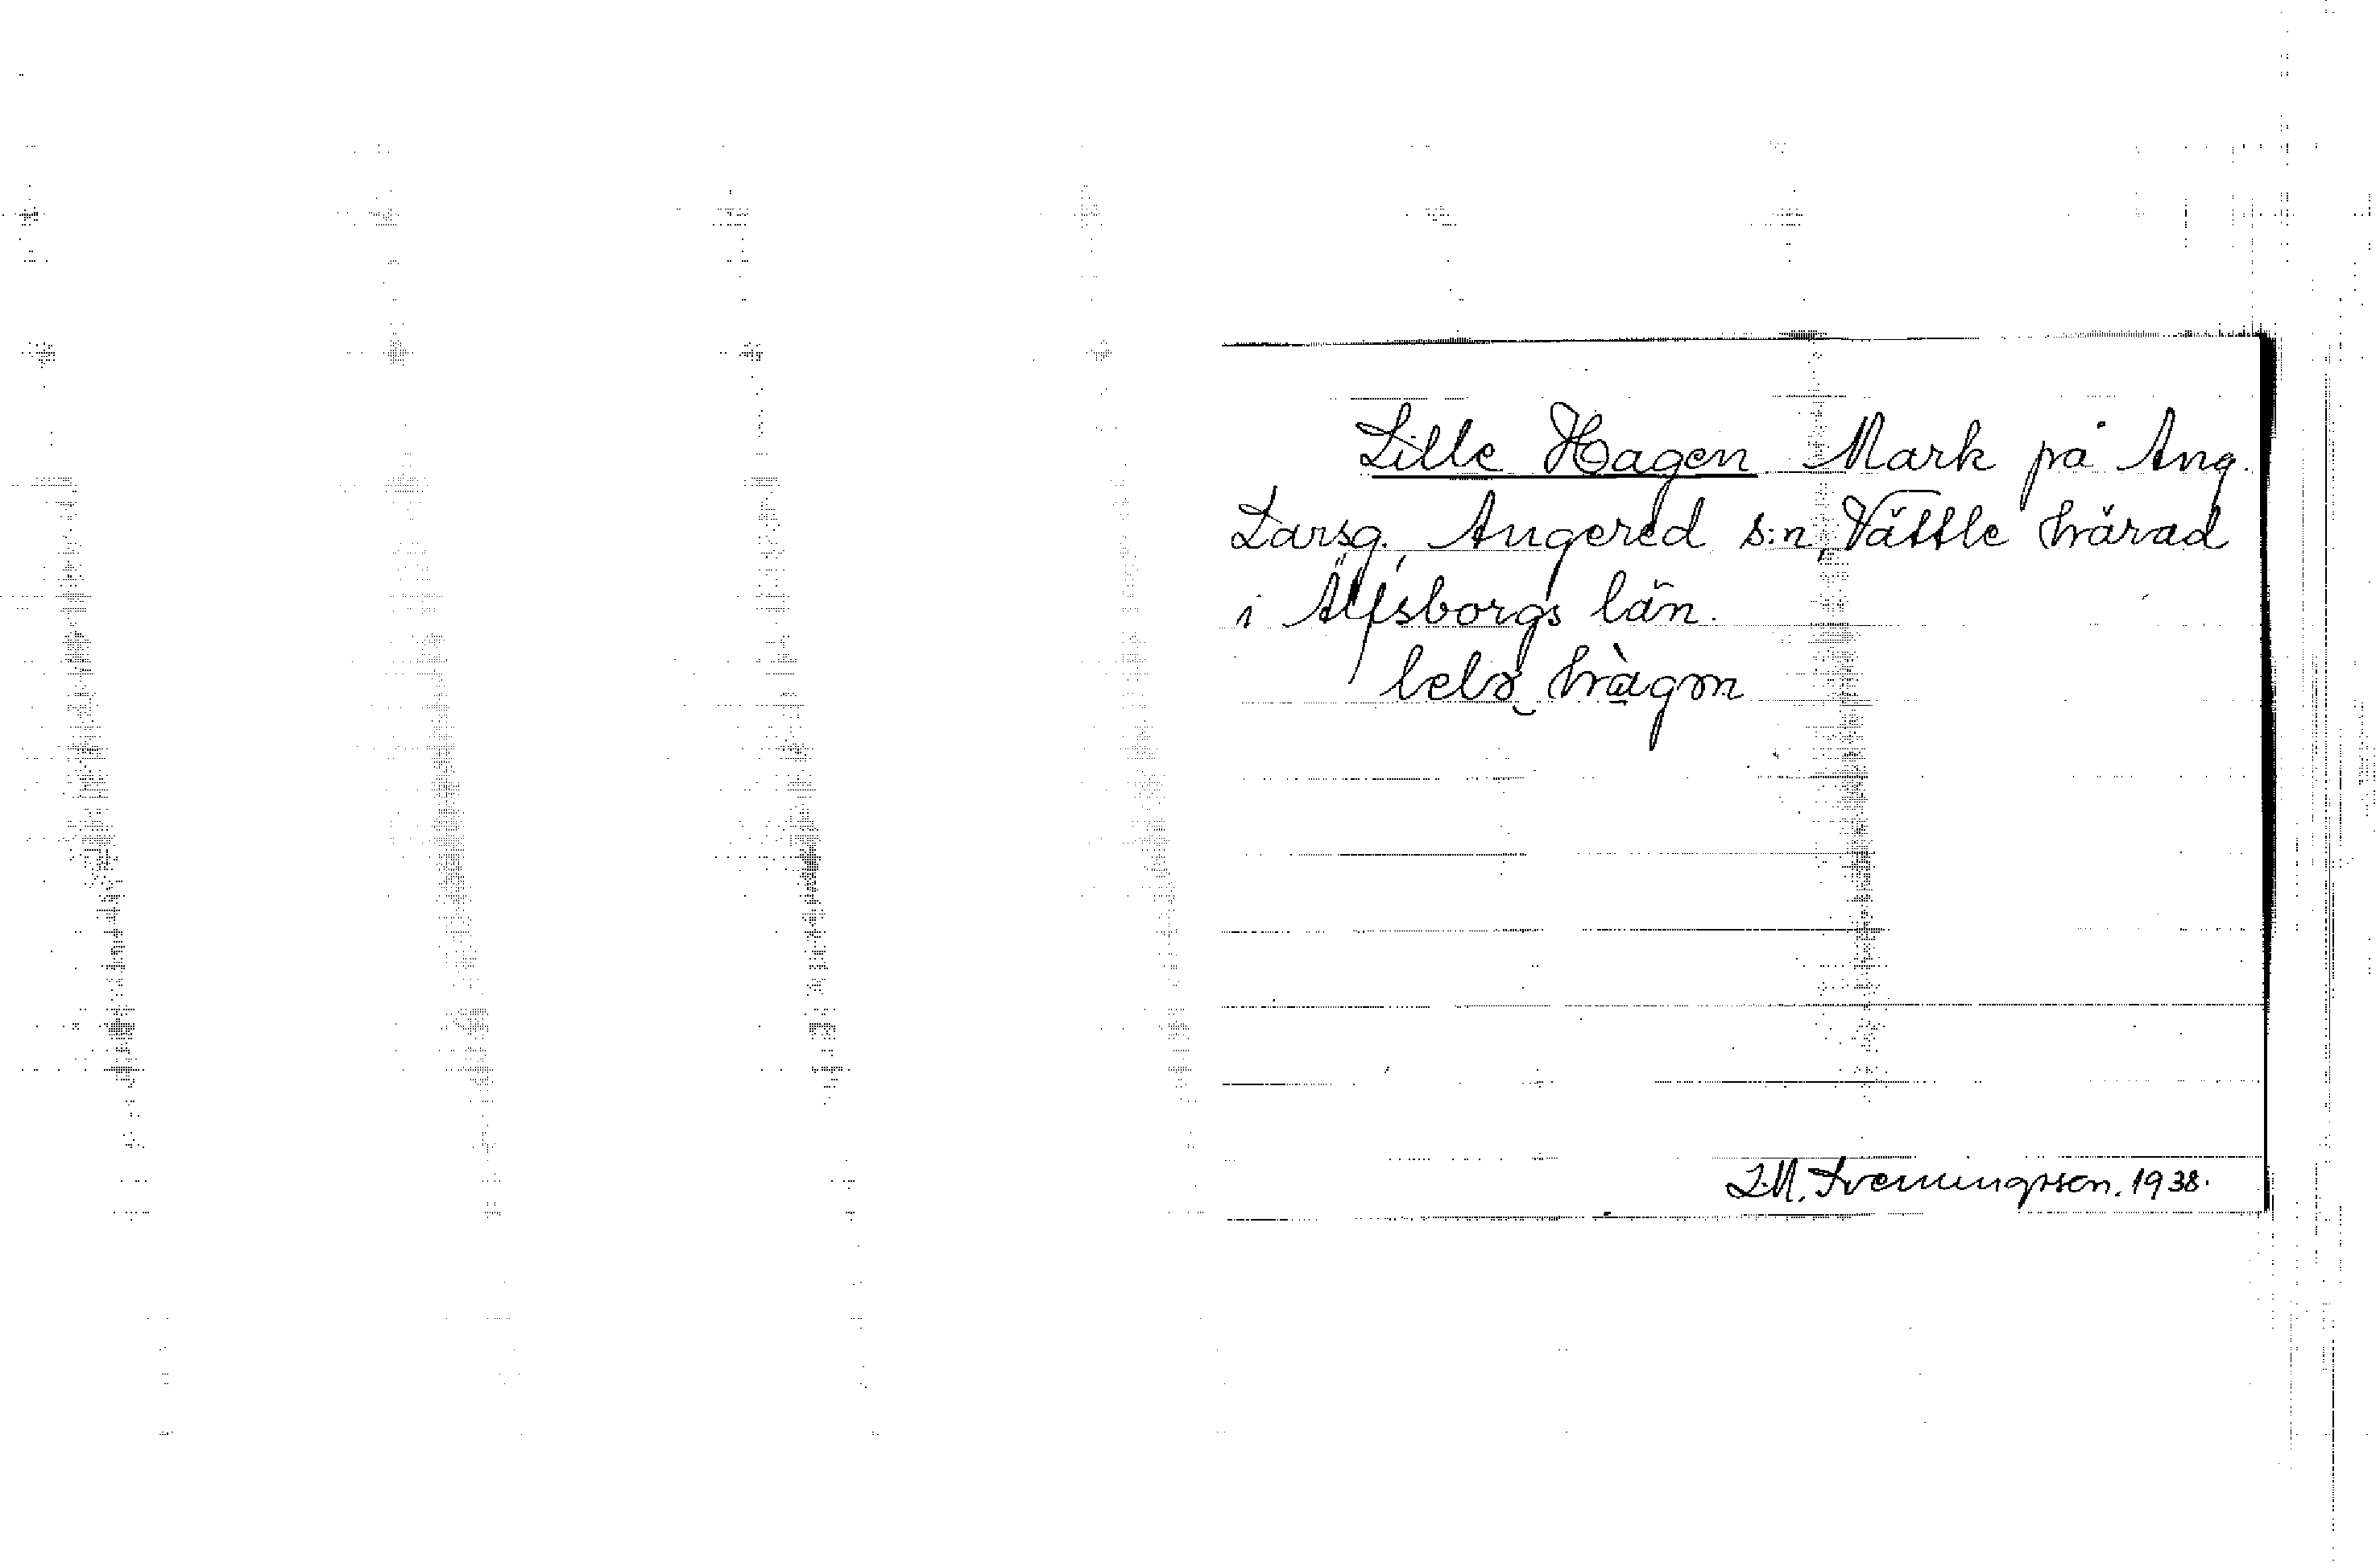 Lille Hagen Mark på Ang.
Larsg., Angered s:n, Vättle härad
i Älfsborgs län.
hàgon
J.M. Svenningsson. 1938.